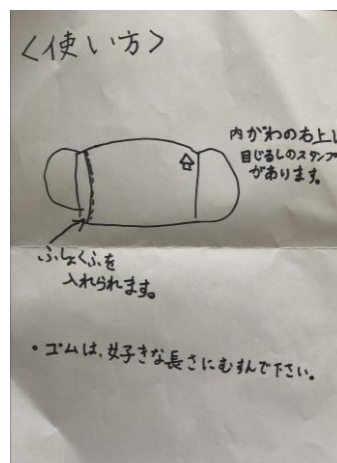 ＜使い方＞
内がわの右上に
目じるしのスタンプ
があります。
ふしょくふを
入れられます。
・ゴムは、好きな長さにむすんで下さい。